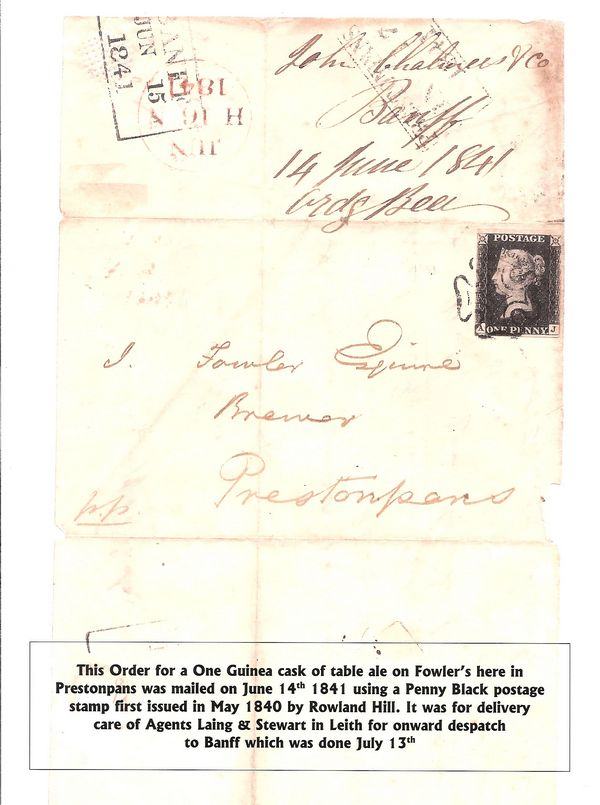 BANFF
JUN 15
1841
1841
H 16 X
JUN
John Chalmers & Co
Banff
14 June 1841
Ordg Beer
POSTAGE
ONE PENNY
A J
J. Fowler Esquire
Brewer
Prestonpans
p.p.
This Order for a One Guinea cask of table ale on Fowler's here in
Prestonpans was mailed on June 14th 1841 using a Penny Black postage
stamp first issued in May 1840 by Rowland Hill. It was for delivery
care of Agents Laing & Stewart in Leith for onward despatch
to Banff which was done July 13th